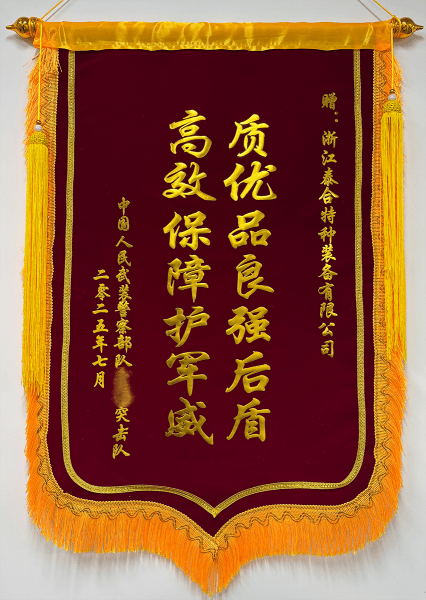 赠：浙江泰合特种装备有限公司
质优品良强后盾
高效保障护军威
中国人民武装警察部队 突击队
二零二五年七月